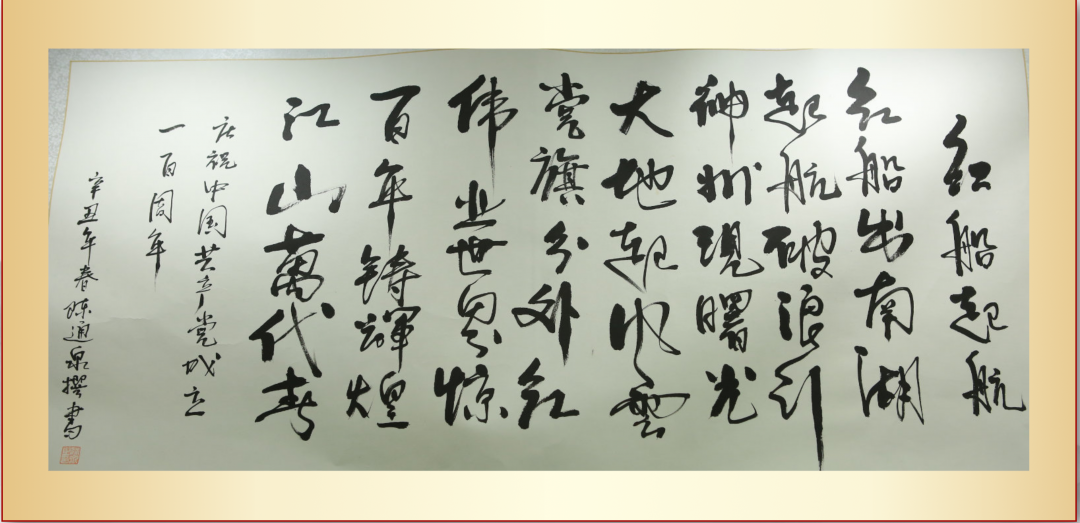 红船起航
红船出南湖
起航破浪行
神州现曙光
大地起风云
党旗分外红
伟业世界惊
百年铸辉煌
江山萬代春
庆祝中国共产党成立
一百周年
辛丑年春陈通泉撰书